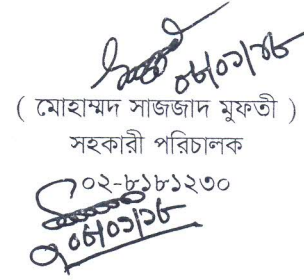 ০৮/০১/১৮
( মোহাম্মদ সাজজাদ মুফতী )
সহকারী পরিচালক
০২-৮১৮১২৩০
০৮/০১/১৮